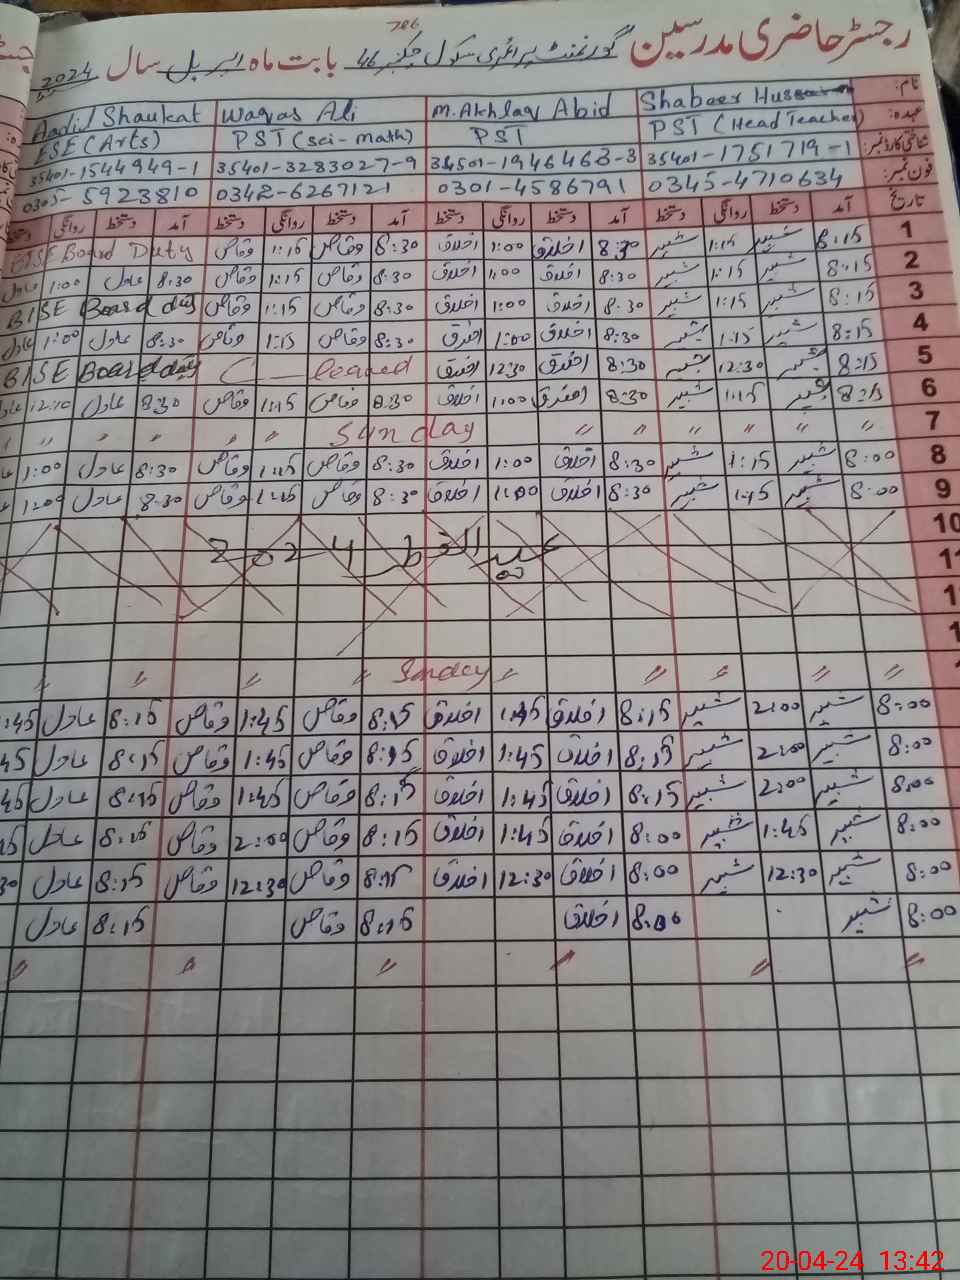 786
رجسٹر حاضری مدرسین گورنمنٹ پرائمری سکول چک نمبر 46 بابت ماہ اپریل سال 2024
نام: Shabeer Hussain M. Akhlaq Abid Waqas Ali Aadil Shaukat
عہدہ: PST (Head Teacher) PST PST (sci-math) ESE (Arts)
شناختی کارڈ نمبر: 35401-1751719-1 34501-1946463-3 35401-3283027-9 35401-1544949-1
فون نمبر: 0345-4710634 0301-4586791 0342-6267121 0305-5923810
تاریخ آمد دستخط روانگی دستخط آمد دستخط روانگی دستخط آمد دستخط روانگی دستخط آمد دستخط روانگی دستخط
1 8:15 شبیر 1:15 شبیر 8:30 اخلاق 1:00 اخلاق 8:30 وقاص 1:15 وقاص BISE Board Duty
2 8:15 شبیر 1:15 شبیر 8:30 اخلاق 1:00 اخلاق 8:30 وقاص 1:15 وقاص 8:30 عادل 1:00 عادل
3 8:15 شبیر 1:15 شبیر 8:30 اخلاق 1:00 اخلاق 8:30 وقاص 1:15 وقاص BISE Board duty
4 8:15 شبیر 1:15 شبیر 8:30 اخلاق 1:00 اخلاق 8:30 وقاص 1:15 وقاص 8:30 عادل 1:00 عادل
5 8:15 شبیر 12:30 شبیر 8:30 اخلاق 12:30 اخلاق C_leaved BISE Board duty
6 8:15 شبیر 1:15 شبیر 8:30 اخلاق 1:00 اخلاق 8:30 وقاص 1:15 وقاص 8:30 عادل 12:10 عادل
7 〃 〃 〃 〃 〃 〃 Sunday 〃 〃 〃 〃 〃 〃
8 8:00 شبیر 1:15 شبیر 8:30 اخلاق 1:00 اخلاق 8:30 وقاص 1:45 وقاص 8:30 عادل 1:00
9 8:00 شبیر 1:15 شبیر 8:30 اخلاق 1:00 اخلاق 8:30 وقاص 1:45 وقاص 8:30 عادل 1:00
10
11 عید الفطر 2024
1
1
〃 〃 〃 〃 〃 Sunday 〃 〃 〃 〃
8:00 شبیر 2:00 شبیر 8:15 اخلاق 1:45 اخلاق 8:15 وقاص 1:45 وقاص 8:15 عادل 1:45
8:00 شبیر 2:00 شبیر 8:15 اخلاق 1:45 اخلاق 8:15 وقاص 1:45 وقاص 8:15 عادل 45
8:00 شبیر 2:00 شبیر 8:15 اخلاق 1:45 اخلاق 8:15 وقاص 1:45 وقاص 8:15 عادل 45
8:00 شبیر 1:45 شبیر 8:00 اخلاق 1:45 اخلاق 8:15 وقاص 2:00 وقاص 8:15 عادل 15
8:00 شبیر 12:30 شبیر 8:00 اخلاق 12:30 اخلاق 8:15 وقاص 12:30 وقاص 8:15 عادل 30
8:00 شبیر 8:00 اخلاق 8:15 وقاص 8:15 عادل
〃 〃 〃 〃 〃 〃
20-04-24 13:42